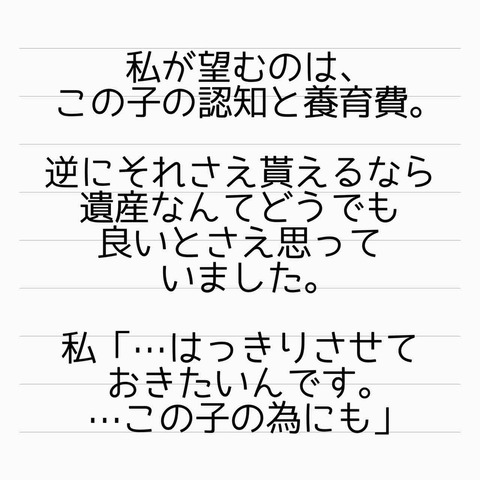 私が望むのは、
この子の認知と養育費。
逆にそれさえ貰えるなら
遺産なんてどうでも
良いとさえ思って
いました。
私「…はっきりさせて
おきたいんです。
…この子の為にも」